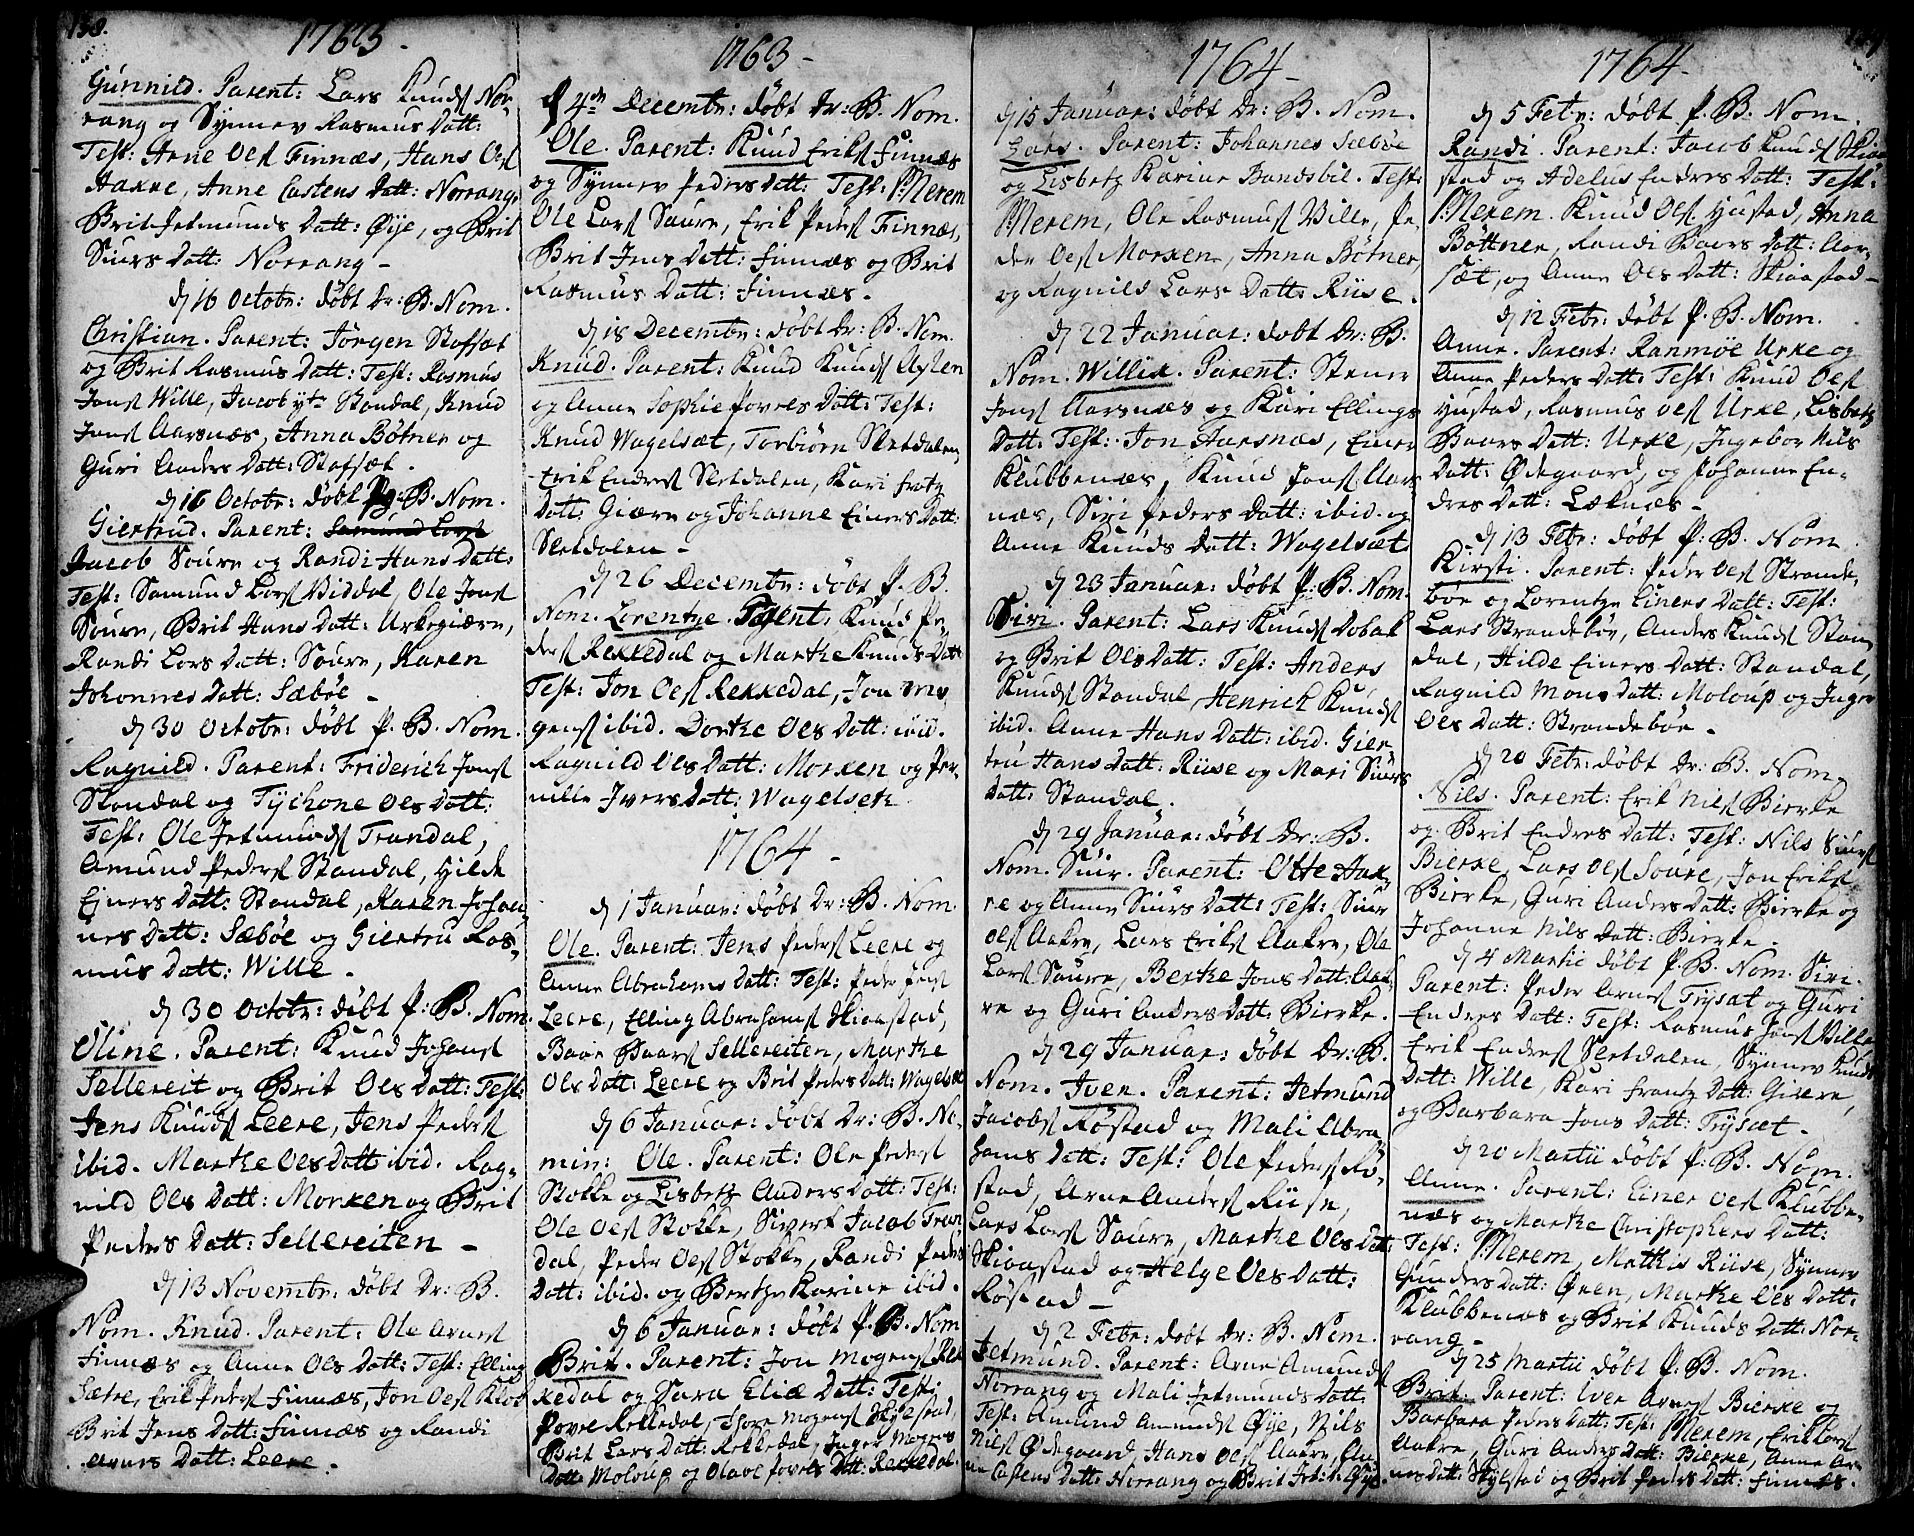 138.
1763.
Gunnild. Parent: Lars Knuds Nor-
rang og Synnev Rasmus Datt:
Test: Arne Oles Finnæs, Hans Oles
Aakre, Anne Castens Datt: Norrang,
Brit Jetmunds Datt: Øye, og Brit
Siurs Datt: Norrang -
d 16 Octobr: døbt Dr: B. Nom.
Christian. Parent: Jørgen Stafsæt
og Brit Rasmus Datt: Test: Rasmus
Jons Wille, Jacob yts Standal, Knud
Jons Aarsnæs, Anna Bøtner og
Guri Anders Datt: Stafsæt.
d 16 Octobr: døbt P: B. Nom.
Giertrud. Parent: Samund Lars
Jacob Soure og Randi Hans Datt:
Test: Samund Lars Viddal, Ole Jons
Soure, Brit Hans Datt: Urkegiære,
Randi Lars Datt: Soure, Karen
Johannes Datt: Sæbøe -
d 30 Octobr: døbt P. B. Nom.
Ragnild. Parent: Friderich Jons
Standal og Tychone Oles Datt:
Test: Ole Jetmunds Trandal,
Amund Peders Standal, Hilde
Ejners Datt: Standal, Karen Johan-
nes Datt: Sæbøe og Giertru Ras-
mus Datt: Wille.
d 30 Octobr: døbt P: B. Nom.
Oline. Parent: Knud Johans
Sellereit og Brit Oles Datt: Test:
Jens Knuds Leere, Jens Peders
ibid. Marthe Oles Datt: ibid. Rag-
nild Oles Datt: Morken og Brit
Peders Datt: Sellereiten -
d 13 Novembr: døbt Dr: B.
Nom. Knud. Parent: Ole Arnes
Finnæs og Anne Oles Datt: Test: Elling
Sætre, Erik Peders Finnæs, Jon Oles
Brit Jens Datt: Finnæs og Randi
Arnes Datt: Leere.
1763 -
d 4de Decembr: døbt Dr: B. Nom.
Ole. Parent: Knud Eriks Finnæs
og Synnev Peders Datt: Test: Merem
Ole Lars Saure, Erik Peders Finnæs,
Brit Jens Datt: Finnæs og Brit
Rasmus Datt: Finnæs.
d 18 Decembr: døbt Dr: B. Nom.
Knud. Parent: Knud Knuds
og Anne Sophie Povels Datt: Test:
Knud Wagelsæt, Torbiørn Sletdalen,
Erik Endres Sletdalen, Kari Frantz
Datt: Giære og Johanne Einers Datt:
Sletdalen -
d 26 Decembr: døbt P. B.
Nom. Lorentze. Parent: Knud Pe-
ders Rekkedal og Marthe Knuds Datt:
Test: Jon Oles Rekkedal, Jon Mo-
gens ibid. Dorthe Oles Datt: ibid.
Ragnild Oles Datt: Morken og Per-
nille Ivers Datt: Wagelseth.
1764 -
d 1 Januar: døbt Dr: B. Nom.
Ole. Parent: Jens Peders Leere og
Anne Abrahams Datt: Test: Peder Jens
Leere, Elling Abrahams Skiaastad,
Baar Baars Sellereiten, Marthe
Oles Datt: Leere og Brit Peders Datt: Wagelsæt
d 6 Januar: døbt Dr: B. No-
min: Ole. Parent: Ole Peders
Stokke og Lisbeth Anders Datt: Test:
Ole Oles Stokke, Sivert Jacob Tran-
dal, Peder Oles Stokke, Randi Peders
Datt: ibid. og Berthe Karine ibid.
d 6 Januar: døbt P. B. Nom
Brit. Parent: Jon Mogens Rek-
kedal og Sara Eliæ Datt: Test:
Povel Rekkedal, Thore Mogens Skylstad,
Brit Lars Datt: Rekkedal, Inger Mogens
Datt: Moloup og Olave Povels Datt: Rekkedal.
1764 -
d 15 Januar: døbt Dr: B. Nom.
Lars. Parent: Johannes Sæbøe
og Lisbeth Karine Bandsbil. Test:
Merem, Ole Rasmus Wille, Pe-
der Oles Morken, Anna Bøtner,
og Ragnild Lars Datt: Riise.
d 22 Januar: døbt Dr: B.
Nom. Willix. Parent: Stener
Jons Aarsnæs og Kari Ellings
Datt: Test: Jon Aarsnæs, Einer
Klubbenæs, Knud Jons Aars-
næs, Siri Peders Datt: ibid. og
Anne Knuds Datt: Wagelsæt
d 23 Januar: døbt P: B. Nom.
Siri. Parent: Lars Knuds Dobak
og Brit Oles Datt: Test: Anders
Knuds Standal, Henrich Knuds
ibid. Anne Hans Datt: ibid. Gier-
tru Hans Datt: Riise og Mari Siurs
Datt: Standal.
d 29 Januar: døbt Dr: B.
Nom. Siur. Parent: Otte Aak-
re og Anne Siurs Datt: Test: Siur
Oles Aakre, Lars Eriks Aakre, Ole
Lars Saure, Berthe Jons Datt: Aak-
re og Guri Anders Datt: Bierke.
d 29 Januar: døbt Dr: B.
Nom. Iver. Parent: Jetmund
Jacobs Røstad og Mali Abra-
hams Datt: Test: Ole Peders Rø-
stad, Arne Anders Riise,
Lars Lars Saure, Marthe Oles Datt:
Skiaastad og Helge Oles Datt:
Røstad -
d 2 Febr: døbt Dr: B. Nom.
Jetmund. Parent: Arne Amunds
Norrang og Mali Jetmunds Datt:
Test: Amund Amunds Øye, Nils
Nils Ødegaard, Hans Oles Aakre, An-
ne Castens Datt: Norrang og Brit Jetm: D: Øye.
1764 -
d 5 Febr: døbt P. B. Nom.
Randi. Parent: Jacob Knuds Skiaa-
stad og Adelus Endres Datt: Test:
Merem. Knud Oles Hustad, Anna
Bøttner, Randi Baars Datt: Aar-
sæt, og Anne Oles Datt: Skiaastad -
d 12 Febr: døbt P. B. Nom.
Anne. Parent: Ranmøe Urke og
Anne Peders Datt: Test: Knud Oles
Hustad, Rasmus Oles Urke, Lisbeth
Baars Datt: Urke, Ingebor Nils
Datt: Ødegaard, og Johanne En-
dres Datt: Leknæs -
d 13 Febr: døbt P: B. Nom.
Kirsti. Parent: Peder Oles Strande-
bøe og Lorentze Einers Datt: Test:
Lars Strandebøe, Anders Knuds Stan-
dal, Hilde Einers Datt: Standal,
Ragnild Mons Datt: Moloup og Inger
Oles Datt: Strandebøe -
d 20 Febr: døbt Dr: B. Nom.
Nils. Parent: Erik Nils Bierke
og Brit Endres Datt: Test: Nils Siurs
Bierke, Lars Oles Soure, Jon Eriks
Bierke, Guri Anders Datt: Bierke og
Johanne Nils Datt: Bierke.
d 4 Martii døbt P. B. Nom. Siri.
Parent: Peder Arnes Trysæt og Guri
Endres Datt: Test: Rasmus Jons Wille
Erik Endres Sletdalen, Synnev Knuds
Datt: Wille, Kari Frantz Datt: Giære,
og Barbara Jons Datt: Trysæt -
d 20 Martii døbt P: B. Nom.
Anne. Parent: Einer Oles Klubbe-
næs og Marthe Christophers Datt:
Test: Merem, Mathis Riise, Synnev
Gunders Datt: Øren, Marthe Oles Datt:
Klubbenæs og Brit Knuds Datt: Nor-
rang -
d 25 Martii døbt P. B. Nom.
Brit. Parent: Iver Arnes Bierke og
Barbara Peders Datt: Test: Merem, Erik Lars
Aakre, Guri Anders Datt: Bierke, Anne Ar-
nes Datt: Skylstad og Brit Peders Datt: Finnæs.